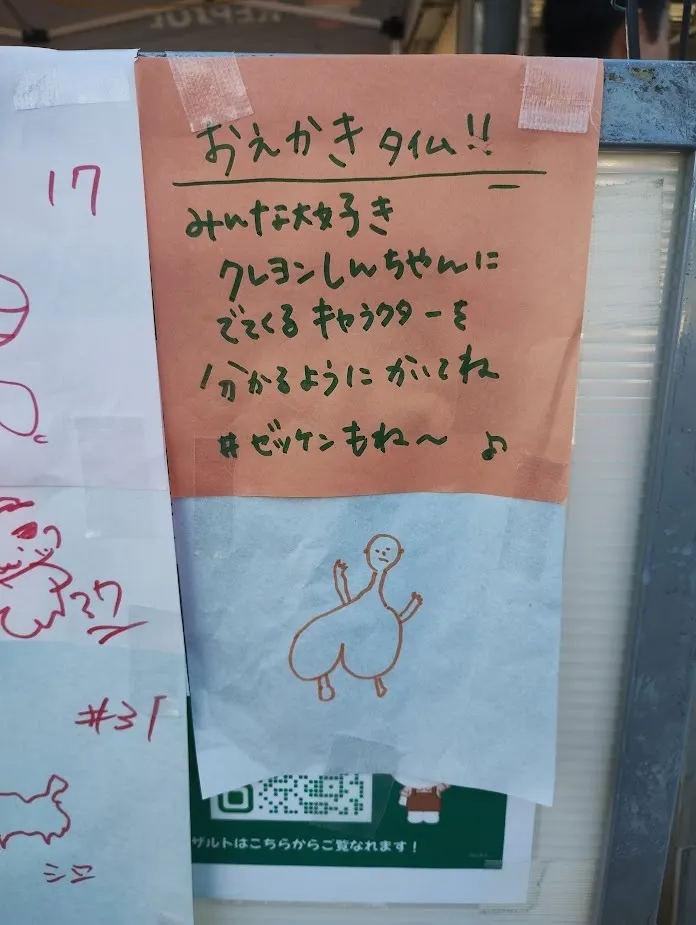 KEPSOL
おえかきタイム!!
みんな大好き
クレヨンしんちゃんに
でてくるキャラクターを
1分かるようにかいてね
#ゼッケンもね〜 ♪
17
37
#31
シロ
ザルトはこちらからご覧なれます!